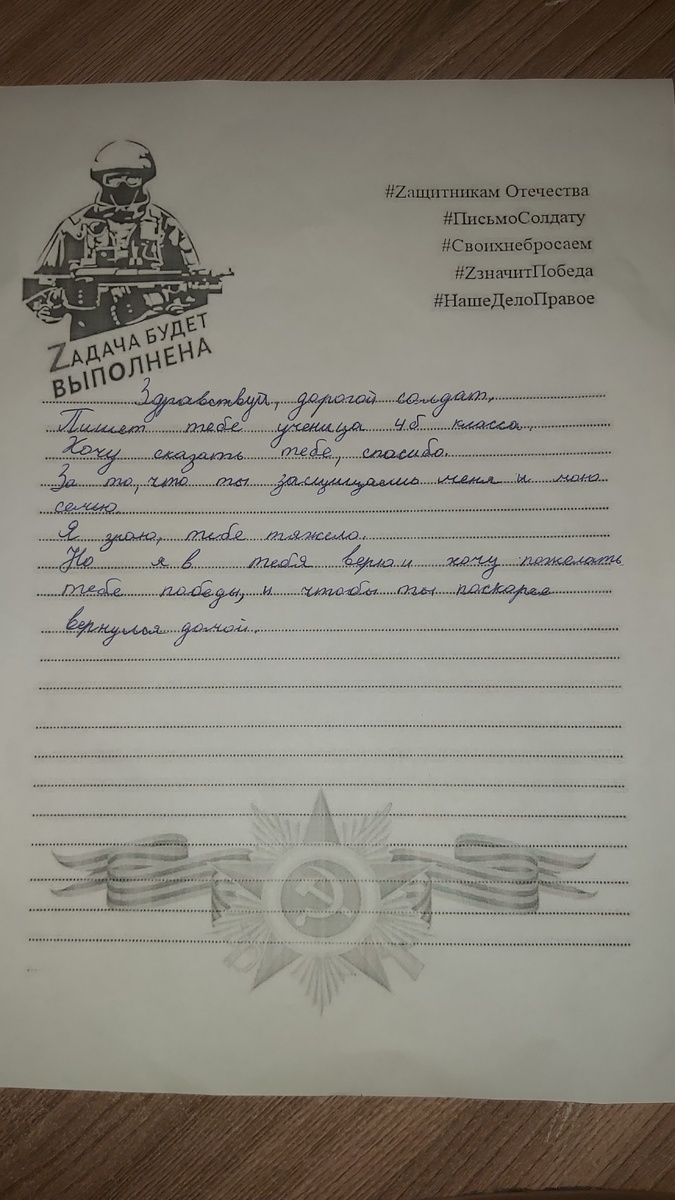 #Zащитникам Отечества
#ПисьмоСолдату
#Своихнебросаем
#ZзначитПобеда
#НашеДелоПравое
ZАДАЧА БУДЕТ
ВЫПОЛНЕНА
Здравствуй, дорогой солдат.
Пишет тебе ученица 4б класса.
Хочу сказать тебе, спасибо.
За то, что ты защищаешь меня и мою
семью.
Я знаю, тебе тяжело.
Но я в тебя верю и хочу пожелать
тебе победы, и чтобы ты поскорее
вернулся домой.